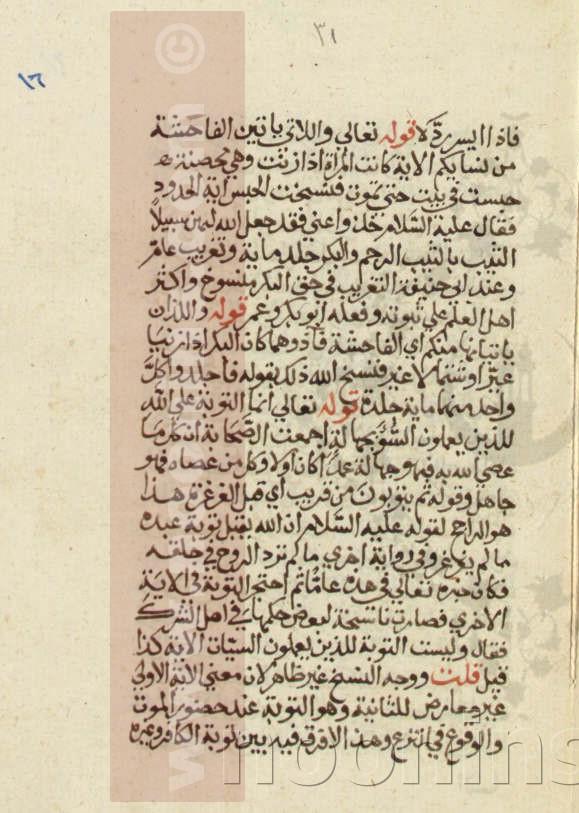 ٣١
١٦
فاذا ايسر رد كا قوله تعالى واللاتى ياتين الفاحشة
من نسايكم الاية كانت المراة اذا زنت وهي محصنة
حبست في بيت حتى تموت فنسخت الحبس اية الحدود
فقال عليه السلام خذوا عني فقد جعل الله لهن سبيلا
الثيب بالثيب الرجم والبكر جلد ماية وتغريب عام
وعند ابى حنيفة التغريب في حق البكر منسوخ واكثر
اهل العلم علي ثبوته وفعله ابو بكر وعمر قوله واللذان
ياتيانها منكم اي الفاحشة فآذوهما كان البكر اذا زنيا
عيرا وشتما لا غير فنسخ الله ذلك بقوله فاجلدوا كل
واحد منهما ماية جلدة قوله تعالي انما التوبة على الله
للذين يعملون السوء بجهالة اجمعت الصحابة ان كل ما
عصي الله به فهو جهالة عمدا كان او لا وكل من عصاه فهو
جاهل وقوله ثم يتوبون من قريب اي قبل الغرغرة هذا
هو الراجح لقوله عليه السلام ان الله يقبل توبة عبده
ما لم يغرغر وفي رواية اخري ما لم تردد الروح في حلقه
فكان خبره تعالي في هذه عاما ثم احتجز التوبة في الاية
الاخري فصارت ناسخة لبعض حكمها في اهل الشرك
فقال وليست التوبة للذين يعملون السيئات الاية كذا
قيل قلت ووجه النسخ غير ظاهر لان معني الاية الاولي
غير معارض للثانية وهو التوبة عند حضور الموت
والوقوع في النزع وهذا لا فرق فيه بين توبة الكافر وغيره
noorlins
©